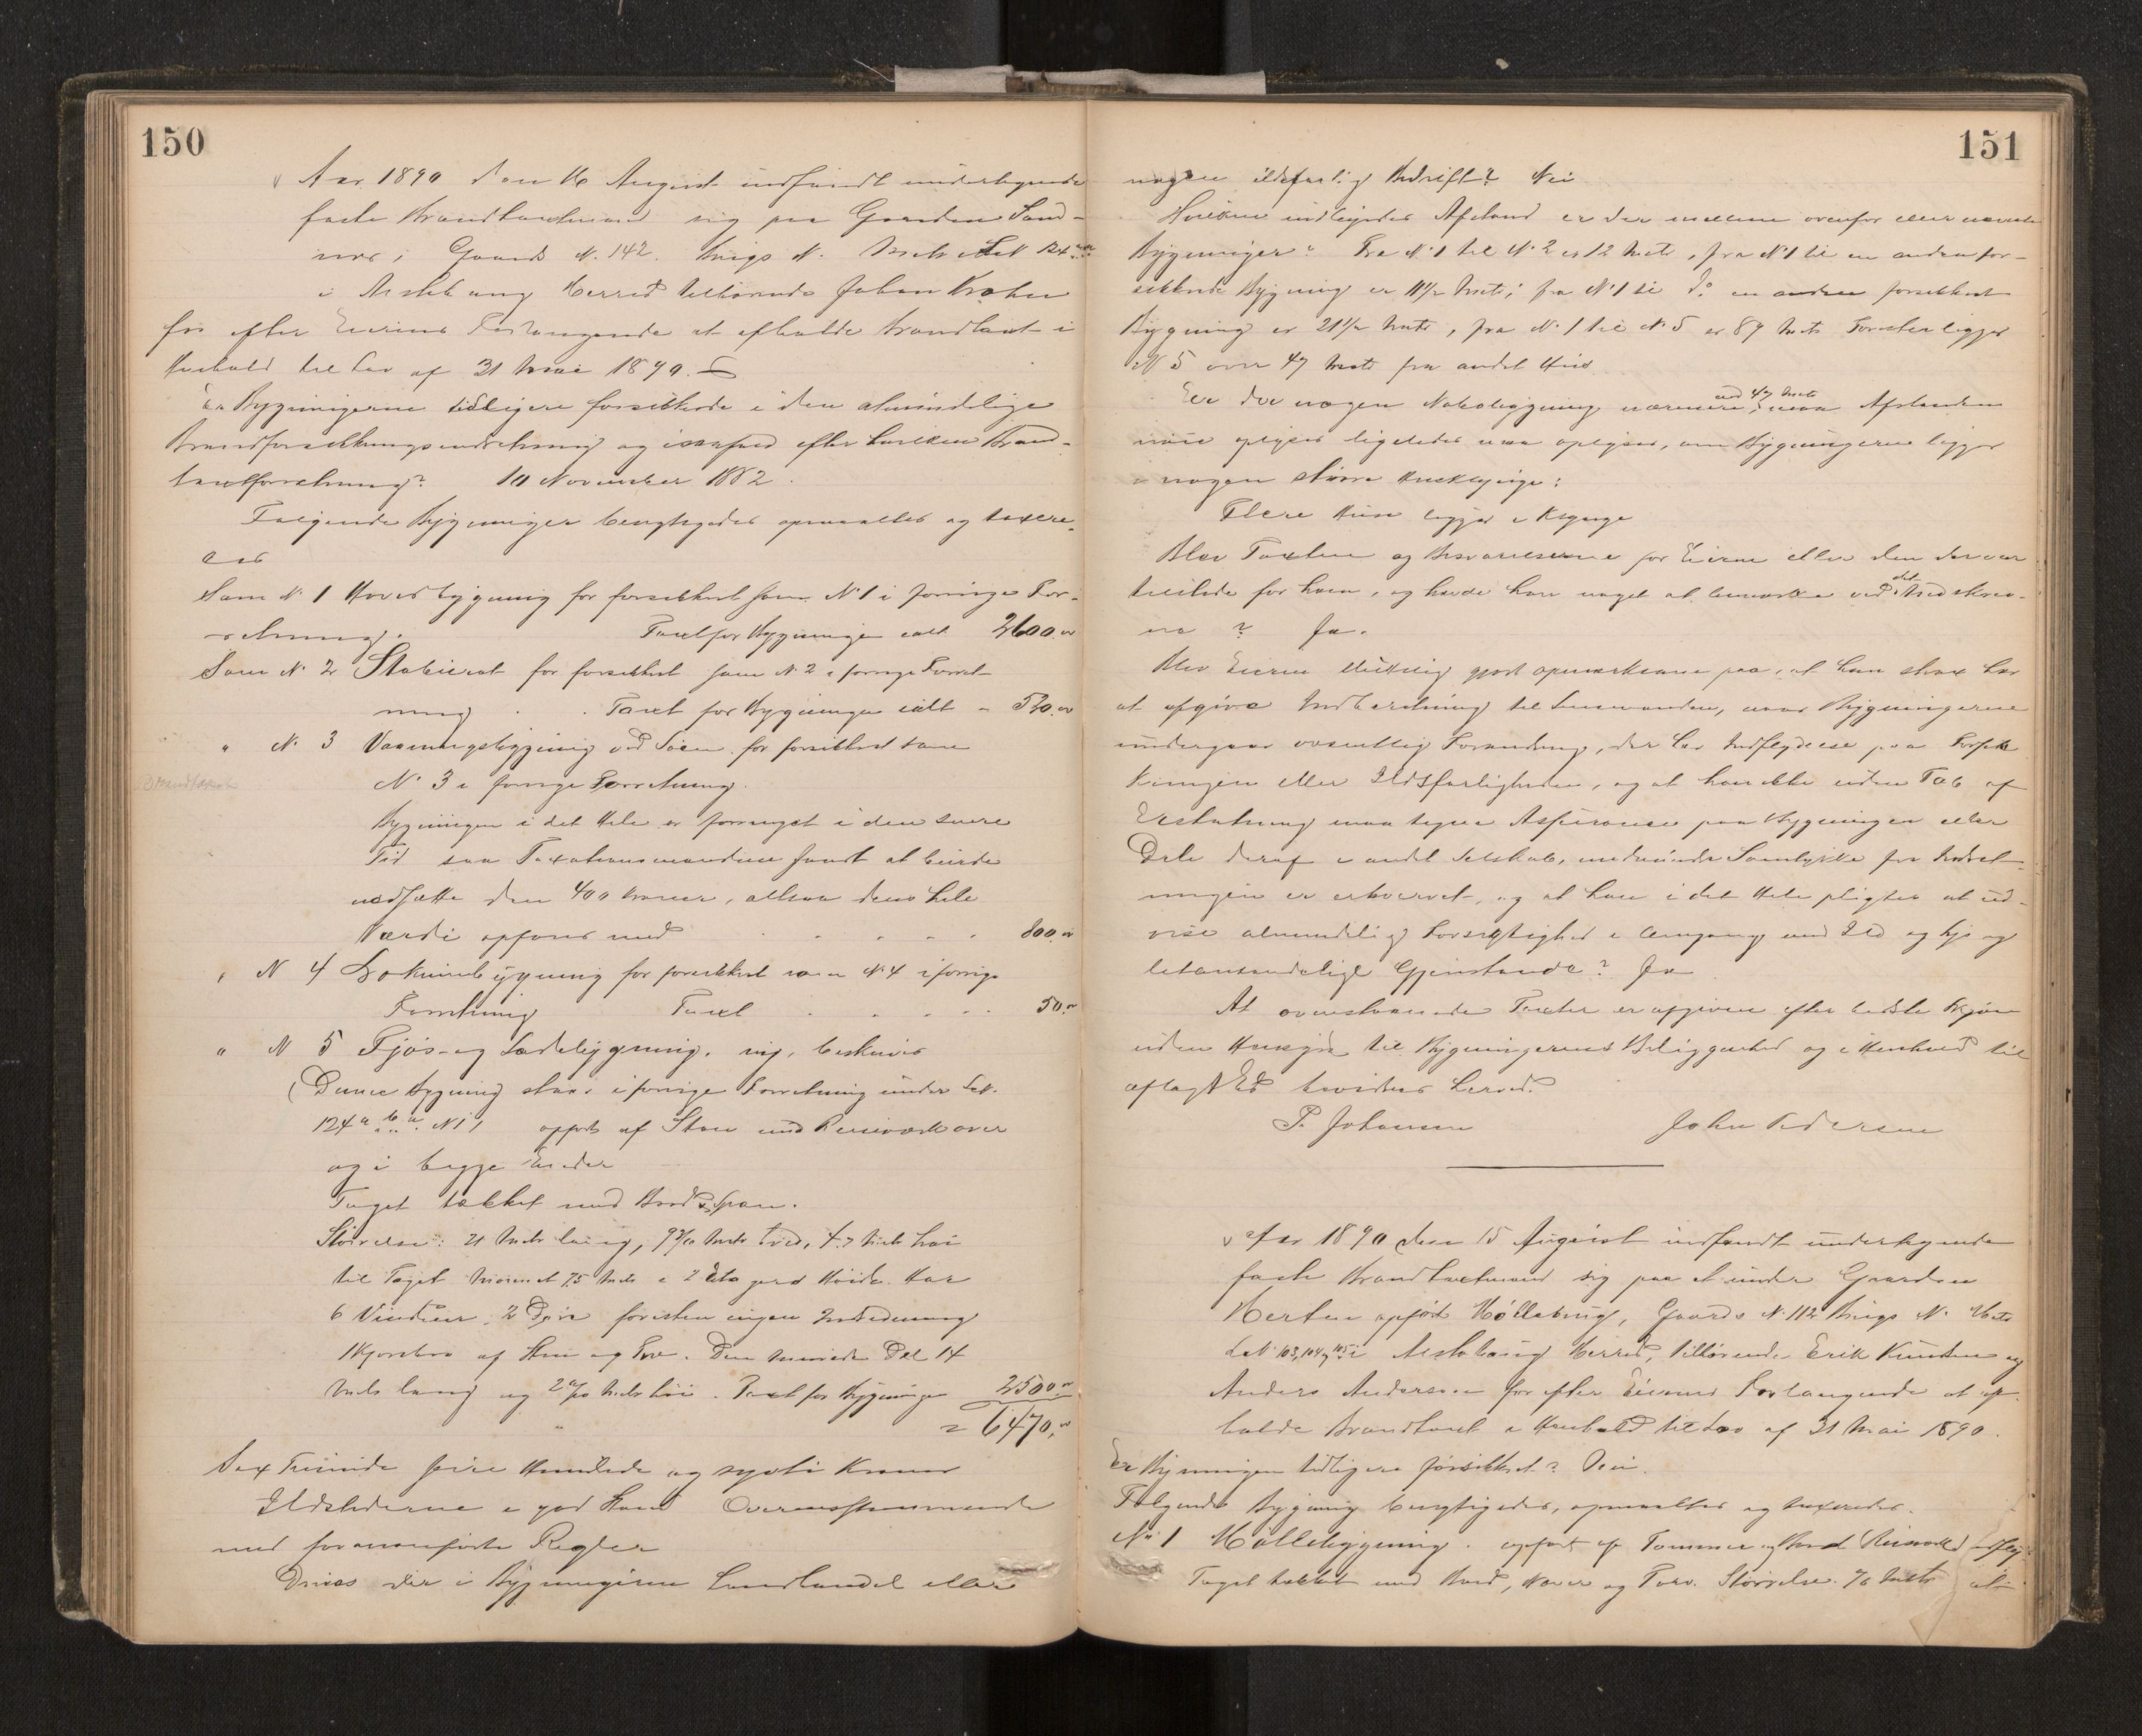 150
Aar 1890 den 16 August indfandt undertegnede
faste Brandtaxtmænd sig paa Gaarden Sand-
nes i Gaards N. 142. Brugs N. Matr
i Alstahaug Herred tilhørende Johan
for efter Eierens Forlangende at afholde Brandtaxt i
Henhold til Lov af 31 Mai 1890.
Er Bygningerne tidligere forsikkrede i den almindelige
Brandforsikkringsindretning og isaafald efter hvilken Brand-
taxtforretning? 10 November 1882.
Følgende Bygninger besigtigedes opmaaltes og taxere-
des
Som N. 1 Hovedbygning før forsikkret som N. 1 i forrige For-
retning. Taxt for Bygningen ialt 2600.00
Som N. 2 Staburat før forsikkret som N. 2 i forrige Forret-
ning . . Taxt for Bygningen ialt - 520.00
" N. 3 Vaaningsbygning ved Søen før forsikkret som
N. 3 i forrige Forretning.
Bygningen i det Hele er forringet i den
Tid saa Taxationsmændene fandt at burde
nedsætte den 400 Kroner, altsaa dens hele
Værdi opføres med . . . . . 800.00
" N 4 bygning før forsikkret som N. 4 i forrige
Forretning Taxt . . . . . 50.00
" N 5 Fjøs- og Ladebygning. ny, beskrives
(Denne Bygning staar i forrige Forretning under Lit.
124 N 1) opført af Sten med Reisværk over
og i begge Ender
Taget tækket med Bord & Spon.
Størrelse: 21 Metr lang, 9 Metr bred, 4.7 Metr høi
til Taget Mønet 7,5 Metr i 2 Etager Høide. Har
6 Vinduer, 2 Døre forresten ingen Indredning
1 Kjørebro af Sten og Træ. Den murede Del 14
Metr lang og 2 Metr høi. Taxt for Bygningen 2500.00
= 6470,00
Sex Tusinde fire Hundrede og sytti Kroner
Ildstederne i god Stand Overensstemmende
med forananførte Regler
Drives der i Bygningerne Landhandel eller
151
nogen ildsfarlig Bedrift? Nei
Hvilken indbyrdes Afstand er der imellem ovenfor eller nævnte
Bygninger? Fra N. 1 til N. 2 er 12 Metr, fra N. 1 til en anden for-
sikkrede Bygning er 11½ Metr; fra N. 1 til do en anden forsikkret
Bygning er 21½ Metr, fra N. 1 til N. 5 er 89 Metr Forresten ligger
N 5 over 47 Metr fra andet Hus
Er der nogen Nabobygning nærmere end 47 Metr, maa Afstanden
nøie oplyses ligeledes maa oplyses, om Bygningerne ligger
i nogen større Husklynge:
Flere Huse ligger i Klynge
Blev Taxten og Besvarelserne for Eieren eller den der var
tilstede for ham, og havde han noget at bemærke ved det Nedskrev-
ne? Ja.
Blev Eieren gjort opmærksom paa, at han strax har
at afgive Indberetning til Lensmanden, naar Bygningerne
undergaar væsentlig Forandring, der har Indflydelse paa Forsik-
kringen eller Ildsfarligheden, og at han ikke uden Tab af
Erstatning maa tegne Assurance paa Bygningen eller
Dele deraf i andet Selskab, medmindre Samtykke fra Indret-
ningen er erhvervet, og at han i det Hele pligter at ud-
vise almindelig Forsigtighed i Omgang med Ild og Lys og
letantændelige Gjenstande? Ja
At ovenstaaende Taxter er afgivne efter bedste Skjøn
uden Hensyn til Bygningernes Beliggenhed og i Henhold til
aflagt Ed bevidnes herved.
P. Johansen John Pedersen
Aar 1890 den 15 August indfandt undertegnede
faste Brandtaxtmænd sig paa et under Gaarden
opført Møllebrug, Gaards N. 112 Brugs N. Matr
L. N. 103, 104 & 105 i Alstahaug Herred, tilhørende Erik Knudsen og
Anders Andersen for efter Eiernes Forlangende at af-
holde Brandtaxt i Henhold til Lov af 31 Mai 1890.
Er Bygningen tidligere forsikkret? Nei.
Følgende Bygning besigtigedes, opmaaltes og taxeredes.
No 1 Møllebygning. opført af Tømmer og Bord (Reisværk)
Taget tækket med Bord, Næver og Torv. Størrelse